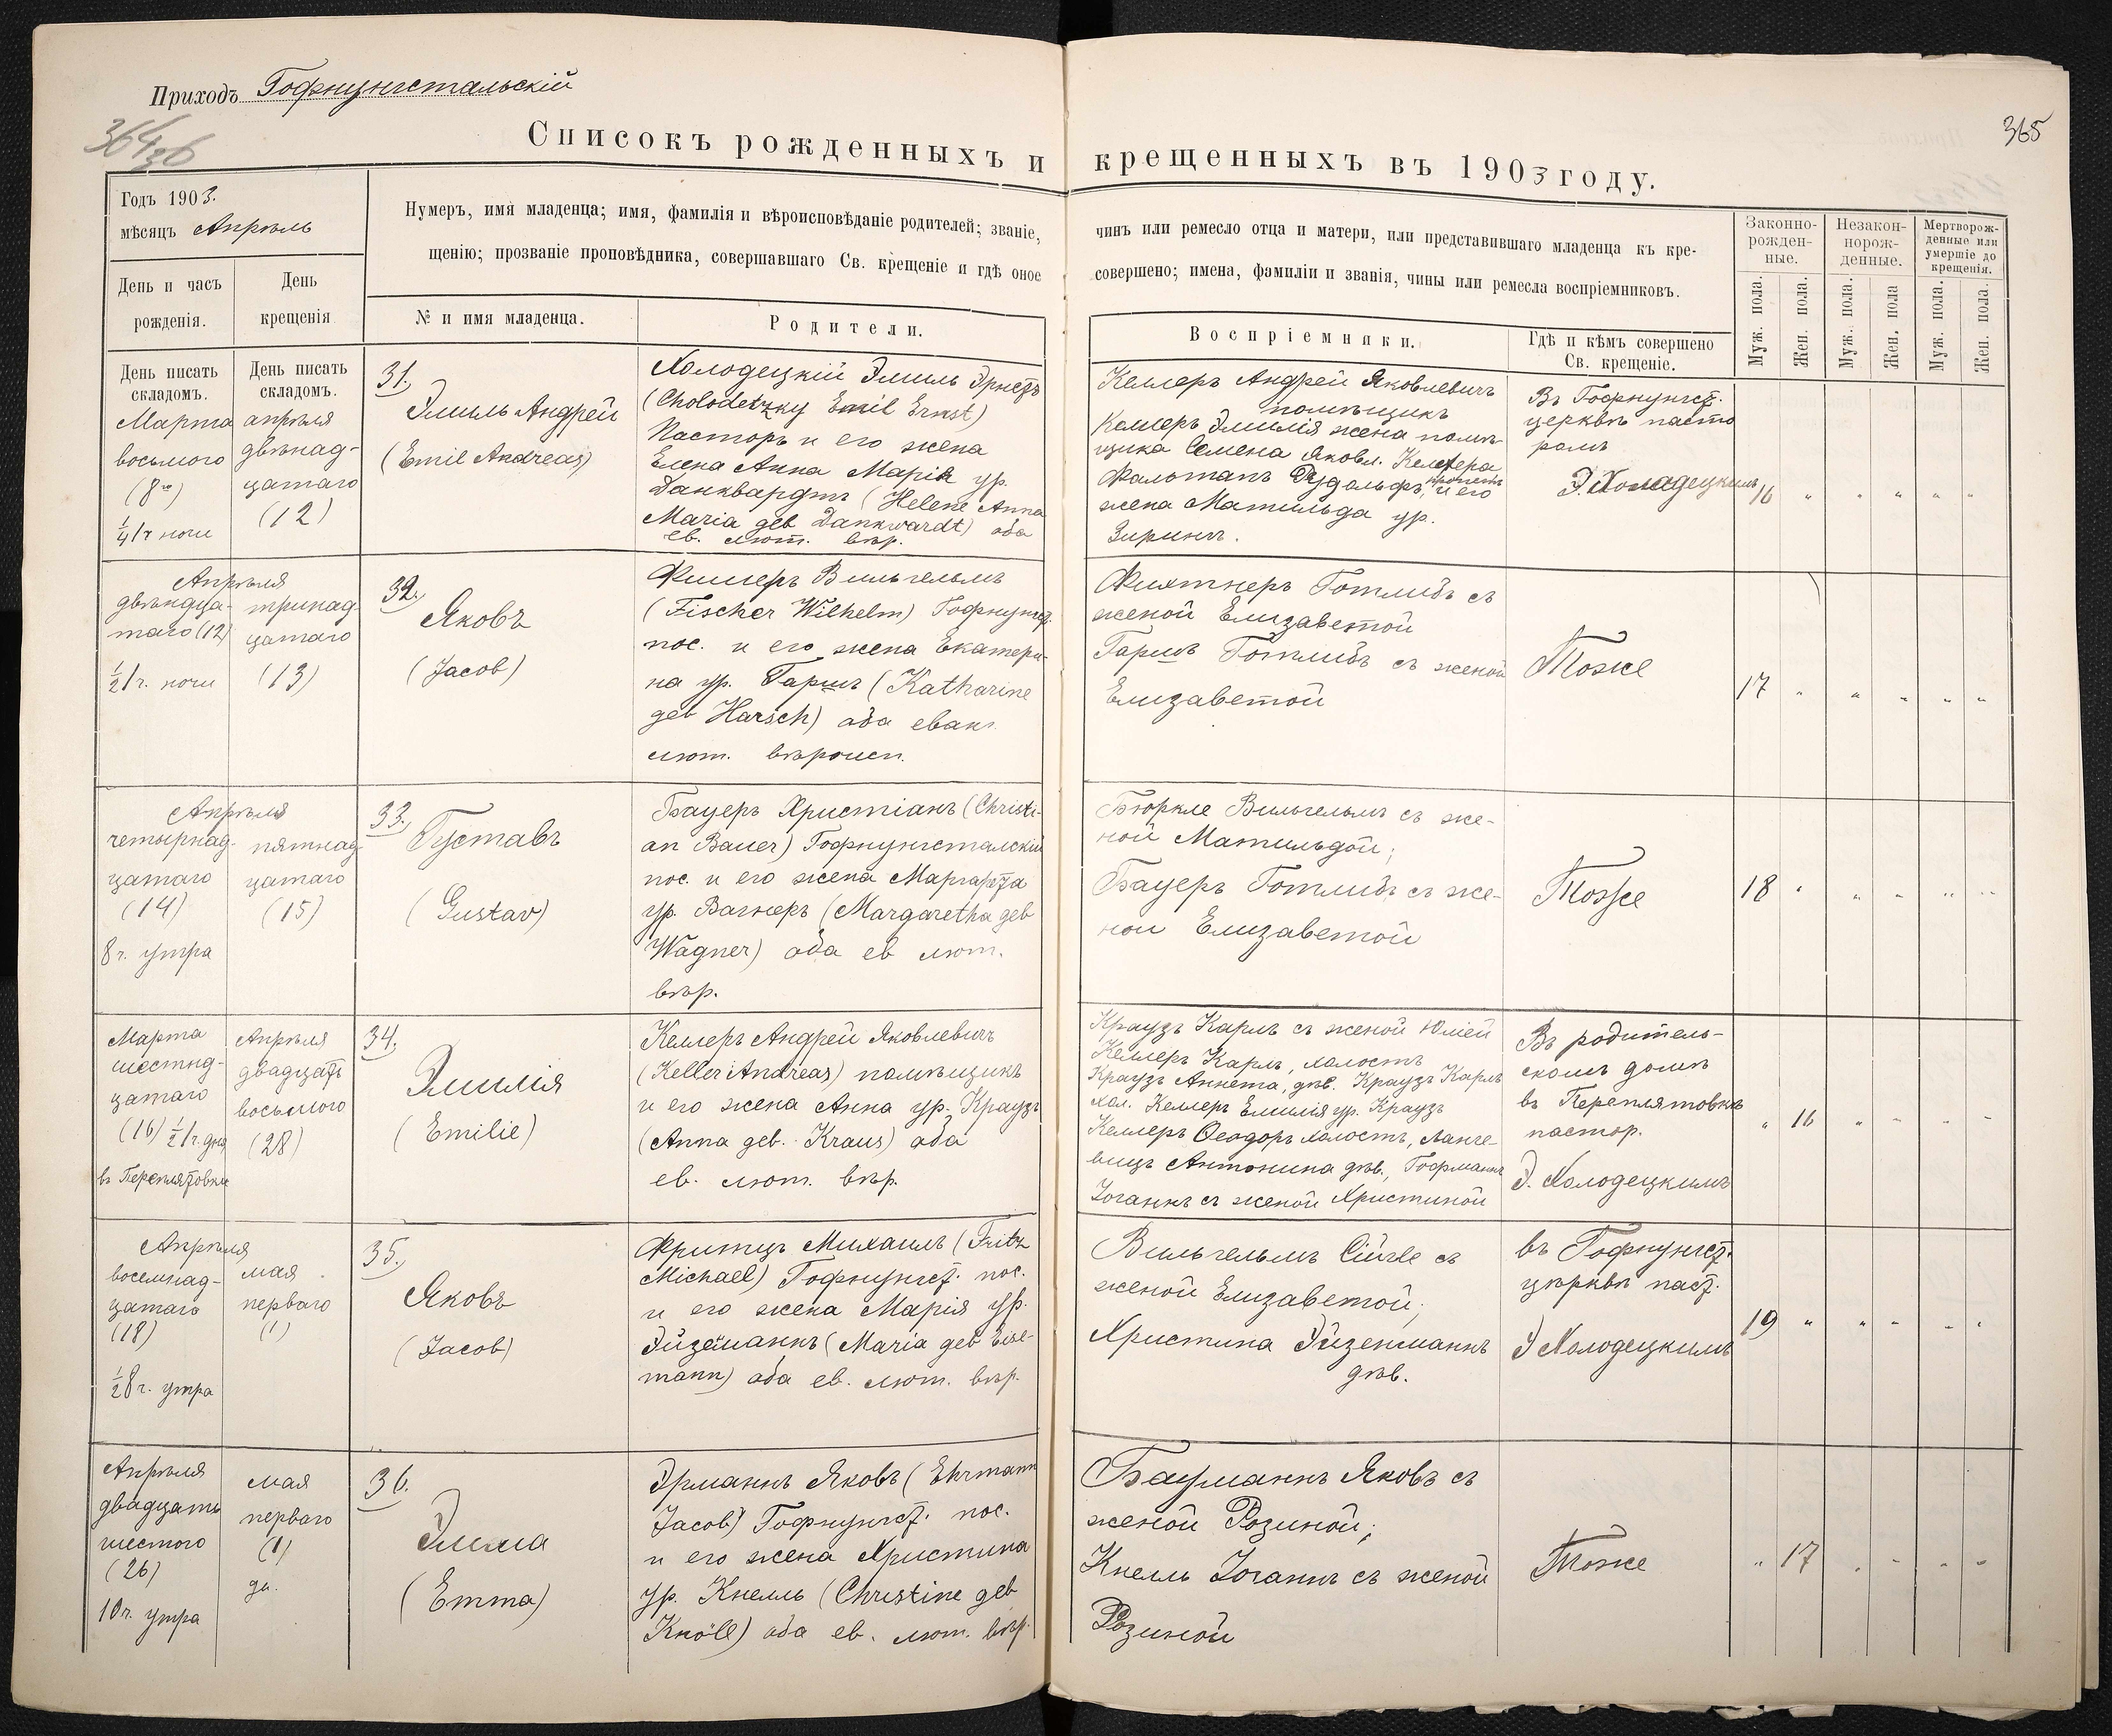 Приходъ Гофнунгстальскій
364
36
365
Списокъ рожденныхъ и крещенныхъ въ 1903 году.
Годъ 1903.
мѣсяцъ Апрѣль
Нумеръ, имя младенца; имя, фамилія и вѣроисповѣданіе родителей; званіе, чинъ или ремесло отца и матери, или представившаго младенца къ кре-
щенію; прозваніе проповѣдника, совершавшаго Св. крещеніе и гдѣ оное совершено; имена, фамиліи и званія, чины или ремесла воспріемниковъ.
Законно-
рожден-
ные.
Незакон-
норож-
денные.
Мертворож-
денные или
умершіе до
крещенія.
День и часъ
рожденія.
День
крещенія
№ и имя младенца.
Родители.
Воспріемники.
Гдѣ и кѣмъ совершено
Св. крещеніе.
Муж. пола.
Жен. пола.
Муж. пола.
Жен. пола
Муж. пола.
Жен. пола.
День писать
складомъ.
День писать
складомъ.
Марта
восьмого
(8го)
1/4 1ч ночи
апрѣля
двѣнад-
цатаго
(12)
31.
Эмиль Андрей
(Emil Andreas)
Холодецкій Эмиль Эрнстъ
(Cholodetzky Emil Ernst)
Пасторъ и его жена
Елена Анна Марія ур.
Данквардтъ (Helene Anna
Maria geb Dankwardt) оба
ев. лют. вѣр.
Келлеръ Андрей Яковлевичъ
помѣщикъ
Келлеръ Эмилія жена помѣ-
щика Семена Яковл. Келлера
Фольтанъ Рудольфъ, и его
жена Матильда ур.
Зиринъ.
Въ Гофнунгст.
церквѣ пасто
ромъ
Э. Холодецкимъ
16 " " " " "
Апрѣля
двѣндца-
таго (12)
1/2 1ч. ночи
тринад-
цатаго
(13)
32.
Яковъ
(Jacob)
Фишеръ Вильгельмъ
(Fischer Wilhelm) Гофнунгст.
пос. и его жена Екатери-
на ур. Гаршъ (Katharine
geb Harsch) оба еванг.
лют. вѣроисп.
Фихтнеръ Готлибъ съ
женой Елизаветой
Гаршъ Готлибъ съ женой
Елизаветой
Тоже
17 " " " " "
Апрѣля
четырнад-
цатаго
(14)
8 ч. утра
пятнад-
цатаго
(15)
33.
Густавъ
(Gustav)
Бауеръ Христіанъ (Christi-
an Bauer) Гофнунгсталскій
пос. и его жена Маргарета
ур. Вагнеръ (Margaretha geb
Wagner) оба ев лют.
вѣр.
Бюркле Вильгельмъ съ же-
ной Матильдой;
Бауеръ Готлибъ съ же-
ной Елизаветой
Тоже
18 " " " " "
Марта
шестнд-
цатаго
(16) 1/2 1 ч. дня
въ Переплятовкѣ
Апрѣля
двадцать
восьмого
(28)
34.
Эмилія
(Emilie)
Келлеръ Андрей Яковлевичъ
(Keller Andreas) помѣщикъ
и его жена Анна ур. Краузъ
(Anna geb. Kraus) оба
ев. лют. вѣр.
Краузъ Карлъ съ женой Юліей
Келлеръ Карлъ, холостъ
Краузъ Аннета, дѣв. Краузъ Карлъ
хол. Келлеръ Емилія ур. Краузъ
Келлеръ Ѳеодоръ холостъ, Ланге-
вицъ Антонина дѣв., Гофманнъ
Іоганнъ съ женой Христиной
Въ родитель-
скомъ домѣ
въ Переплятовкѣ
пастор.
Э. Холодецкимъ
" 16 " " "
Апрѣля
восемнад-
цатаго
(18)
1/2 8 ч. утра
мая
перваго
(1)
35.
Яковъ
(Jacob)
Фритцъ Михаилъ (Fritz
Michael) Гофнунгст. пос.
и его жена Марія ур.
Эйземаннъ (Maria geb Eise-
mann) оба ев. лют. вѣр.
Вильгельмъ съ
женой Елизаветой;
Христина Эйзенманнъ
дѣв.
въ Гофнунгст.
церквѣ паст.
Э Холодецкимъ
19 " " " " "
Апрѣля
двадцать
шестого
(26)
10 ч. утра
мая
перваго
(1)
36.
Эмма
(Emma)
Эрманнъ Яковъ (Ehrmann
Jacob) Гофнунгст. пос.
и его жена Христина
ур. Кнелль (Christine geb
Knöll) оба ев. лют. вѣр.
Бауманнъ Яковъ съ
женой Розиной;
Кнелль Іоганнъ съ женой
Розиной
Тоже
" 17 " " " "